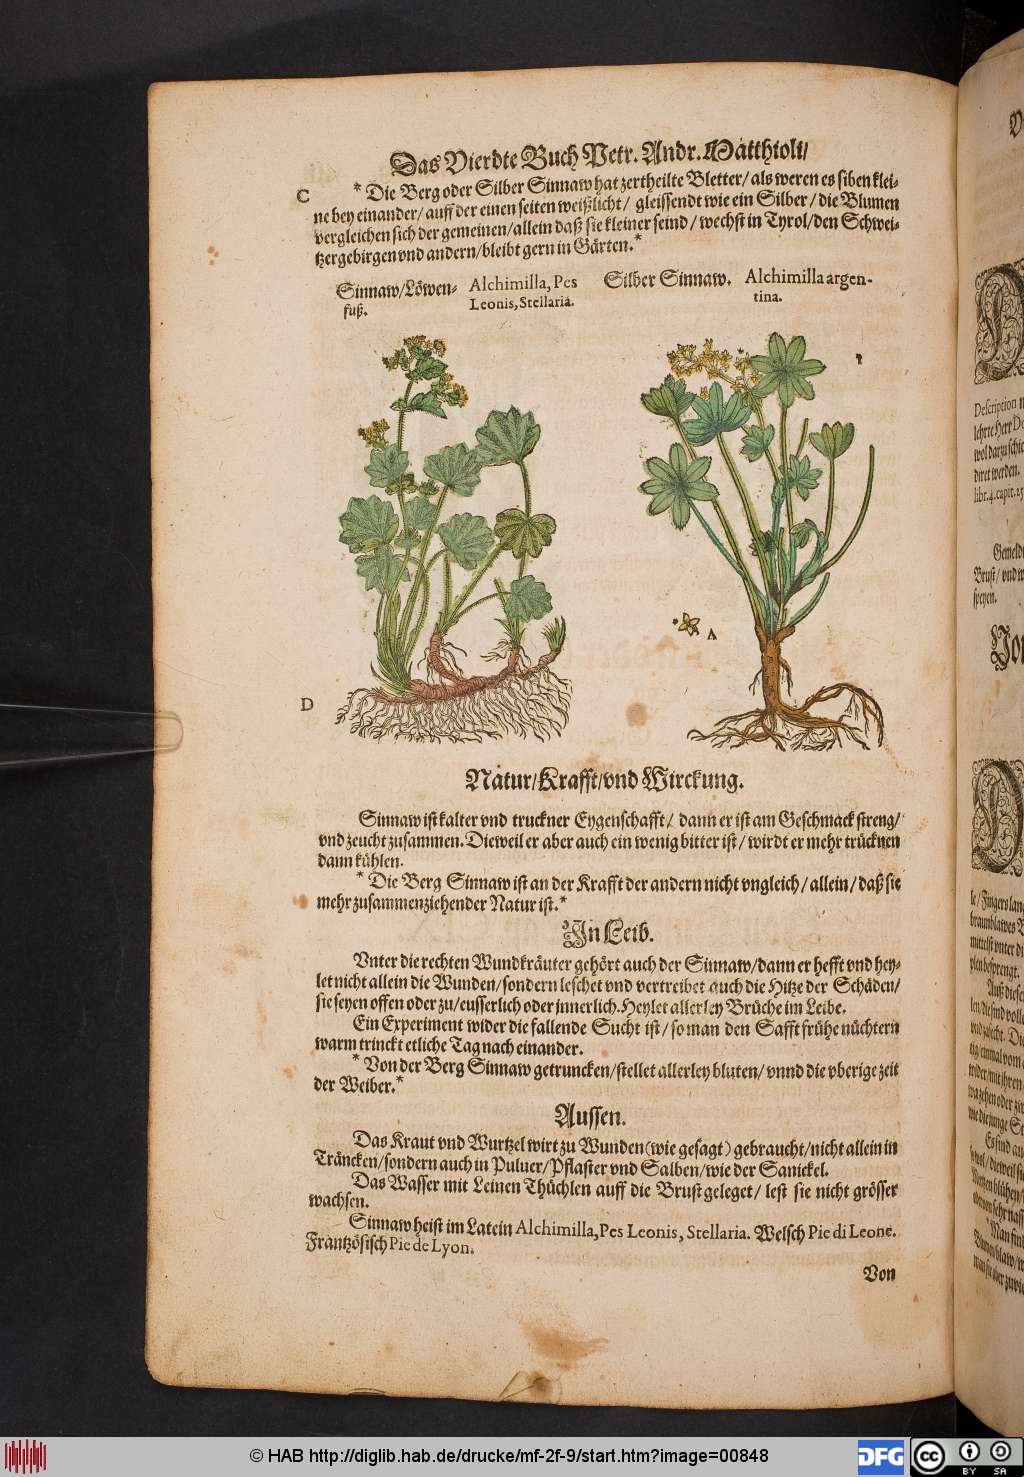 Das Vierdte Buch Petr. Andr. Matthioli/
C
* Die Berg oder Silber Sinnaw hat zertheilte Bletter/ als weren es siben klei-
ne bey einander/ auff der einen seiten weißlicht/ gleissendt wie ein Silber/ die Blumen
vergleichen sich der gemeinen/ allein daß sie kleiner seind/ wechst in Tyrol/ den Schwei-
tzergebirgen vnd andern/ bleibt gern in Gärten.*
Sinnaw/ Löwen-
fuß.
Alchimilla, Pes
Leonis, Stellaria.
Silber Sinnaw.
Alchimilla argen-
tina.
A
D
Natur/ Krafft/ vnd Wirckung.
Sinnaw ist kalter vnd truckner Eygenschafft/ dann er ist am Geschmack streng/
vnd zeucht zusammen. Dieweil er aber auch ein wenig bitter ist/ wirdt er mehr trücknen
dann kühlen.
* Die Berg Sinnaw ist an der Krafft der andern nicht vngleich/ allein/ daß sie
mehr zusammenziehender Natur ist.*
In Leib.
Vnter die rechten Wundkräuter gehört auch der Sinnaw/ dann er hefft vnd hey-
let nicht allein die Wunden/ sondern leschet vnd vertreibet auch die Hitze der Schäden/
sie seyen offen oder zu/ eusserlich oder innerlich. Heylet allerley Brüche im Leibe.
Ein Experiment wider die fallende Sucht ist/ so man den Safft frühe nüchtern
warm trinckt etliche Tag nach einander.
* Von der Berg Sinnaw getruncken/ stellet allerley bluten/ vnnd die vberige zeit
der Weiber.*
Aussen.
Das Kraut vnd Wurtzel wirt zu Wunden (wie gesagt) gebraucht/ nicht allein in
Träncken/ sondern auch in Puluer/ Pflaster vnd Salben/ wie der Sanickel.
Das Wasser mit Leinen Thüchlen auff die Brust geleget/ lest sie nicht grösser
wachsen.
Sinnaw heist im Latein Alchimilla, Pes Leonis, Stellaria. Welsch Pie di Leone.
Frantzösisch Pie de Lyon.
Von
Description
lehrte Herr
wol darzu
diret werden.
libr. 4. capit.
Brust/ vnd
speyen.
le/ Fingers lang
© HAB http://diglib.hab.de/drucke/mf-2f-9/start.htm?image=00848
DFG
cc
BY SA